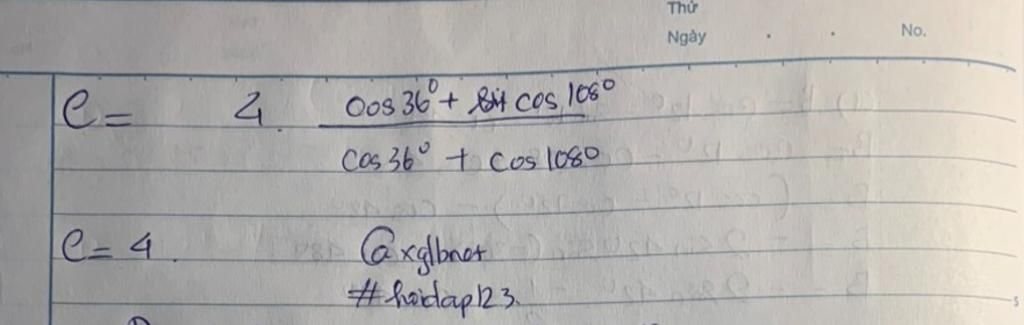 Thứ
Ngày . . No.
C = 4. cos 36° + cos 108°
cos 36° + cos 108°
C = 4. @xglbnot
#hoidap123.